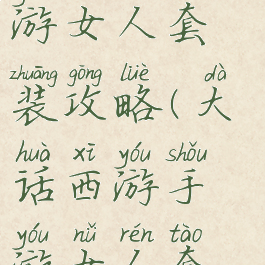 游女人套
zhuāng gōng lüè dà
装攻略(大
huà xī yóu shǒu
话西游手
yóu nǚ rén tào
游女人套